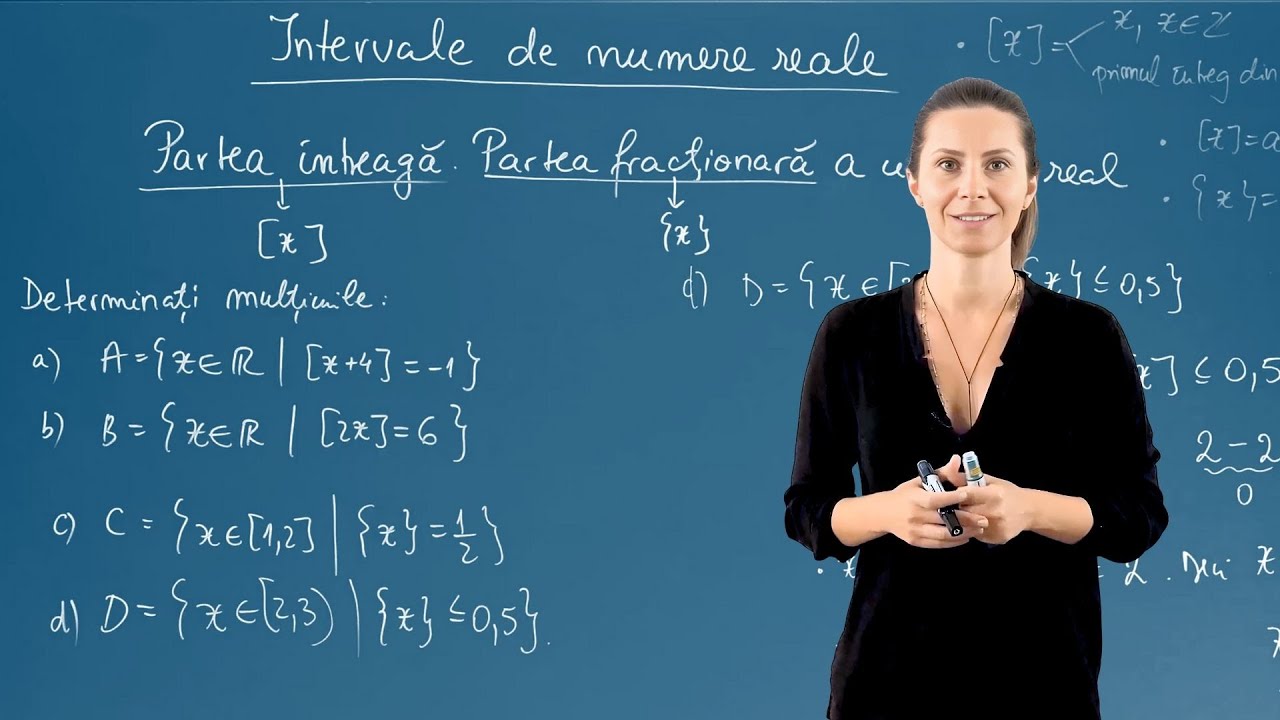 Intervale de numere reale
Partea întreagă. Partea fracționară a real
[x]
{x}
Determinați mulțimile:
a) A={x∈ℝ | [x+4]=-1}
b) B={x∈ℝ | [2x]=6}
c) C={x∈[1,2] | {x}=1/2}
d) D={x∈[2,3) | {x}≤0,5}.
• [x]= x, x∈ℤ
primul întreg din
• [x]=a
• {x}=
d) D={x∈[ {x}≤0,5}
x]≤0,5
2-2
0
Deci x